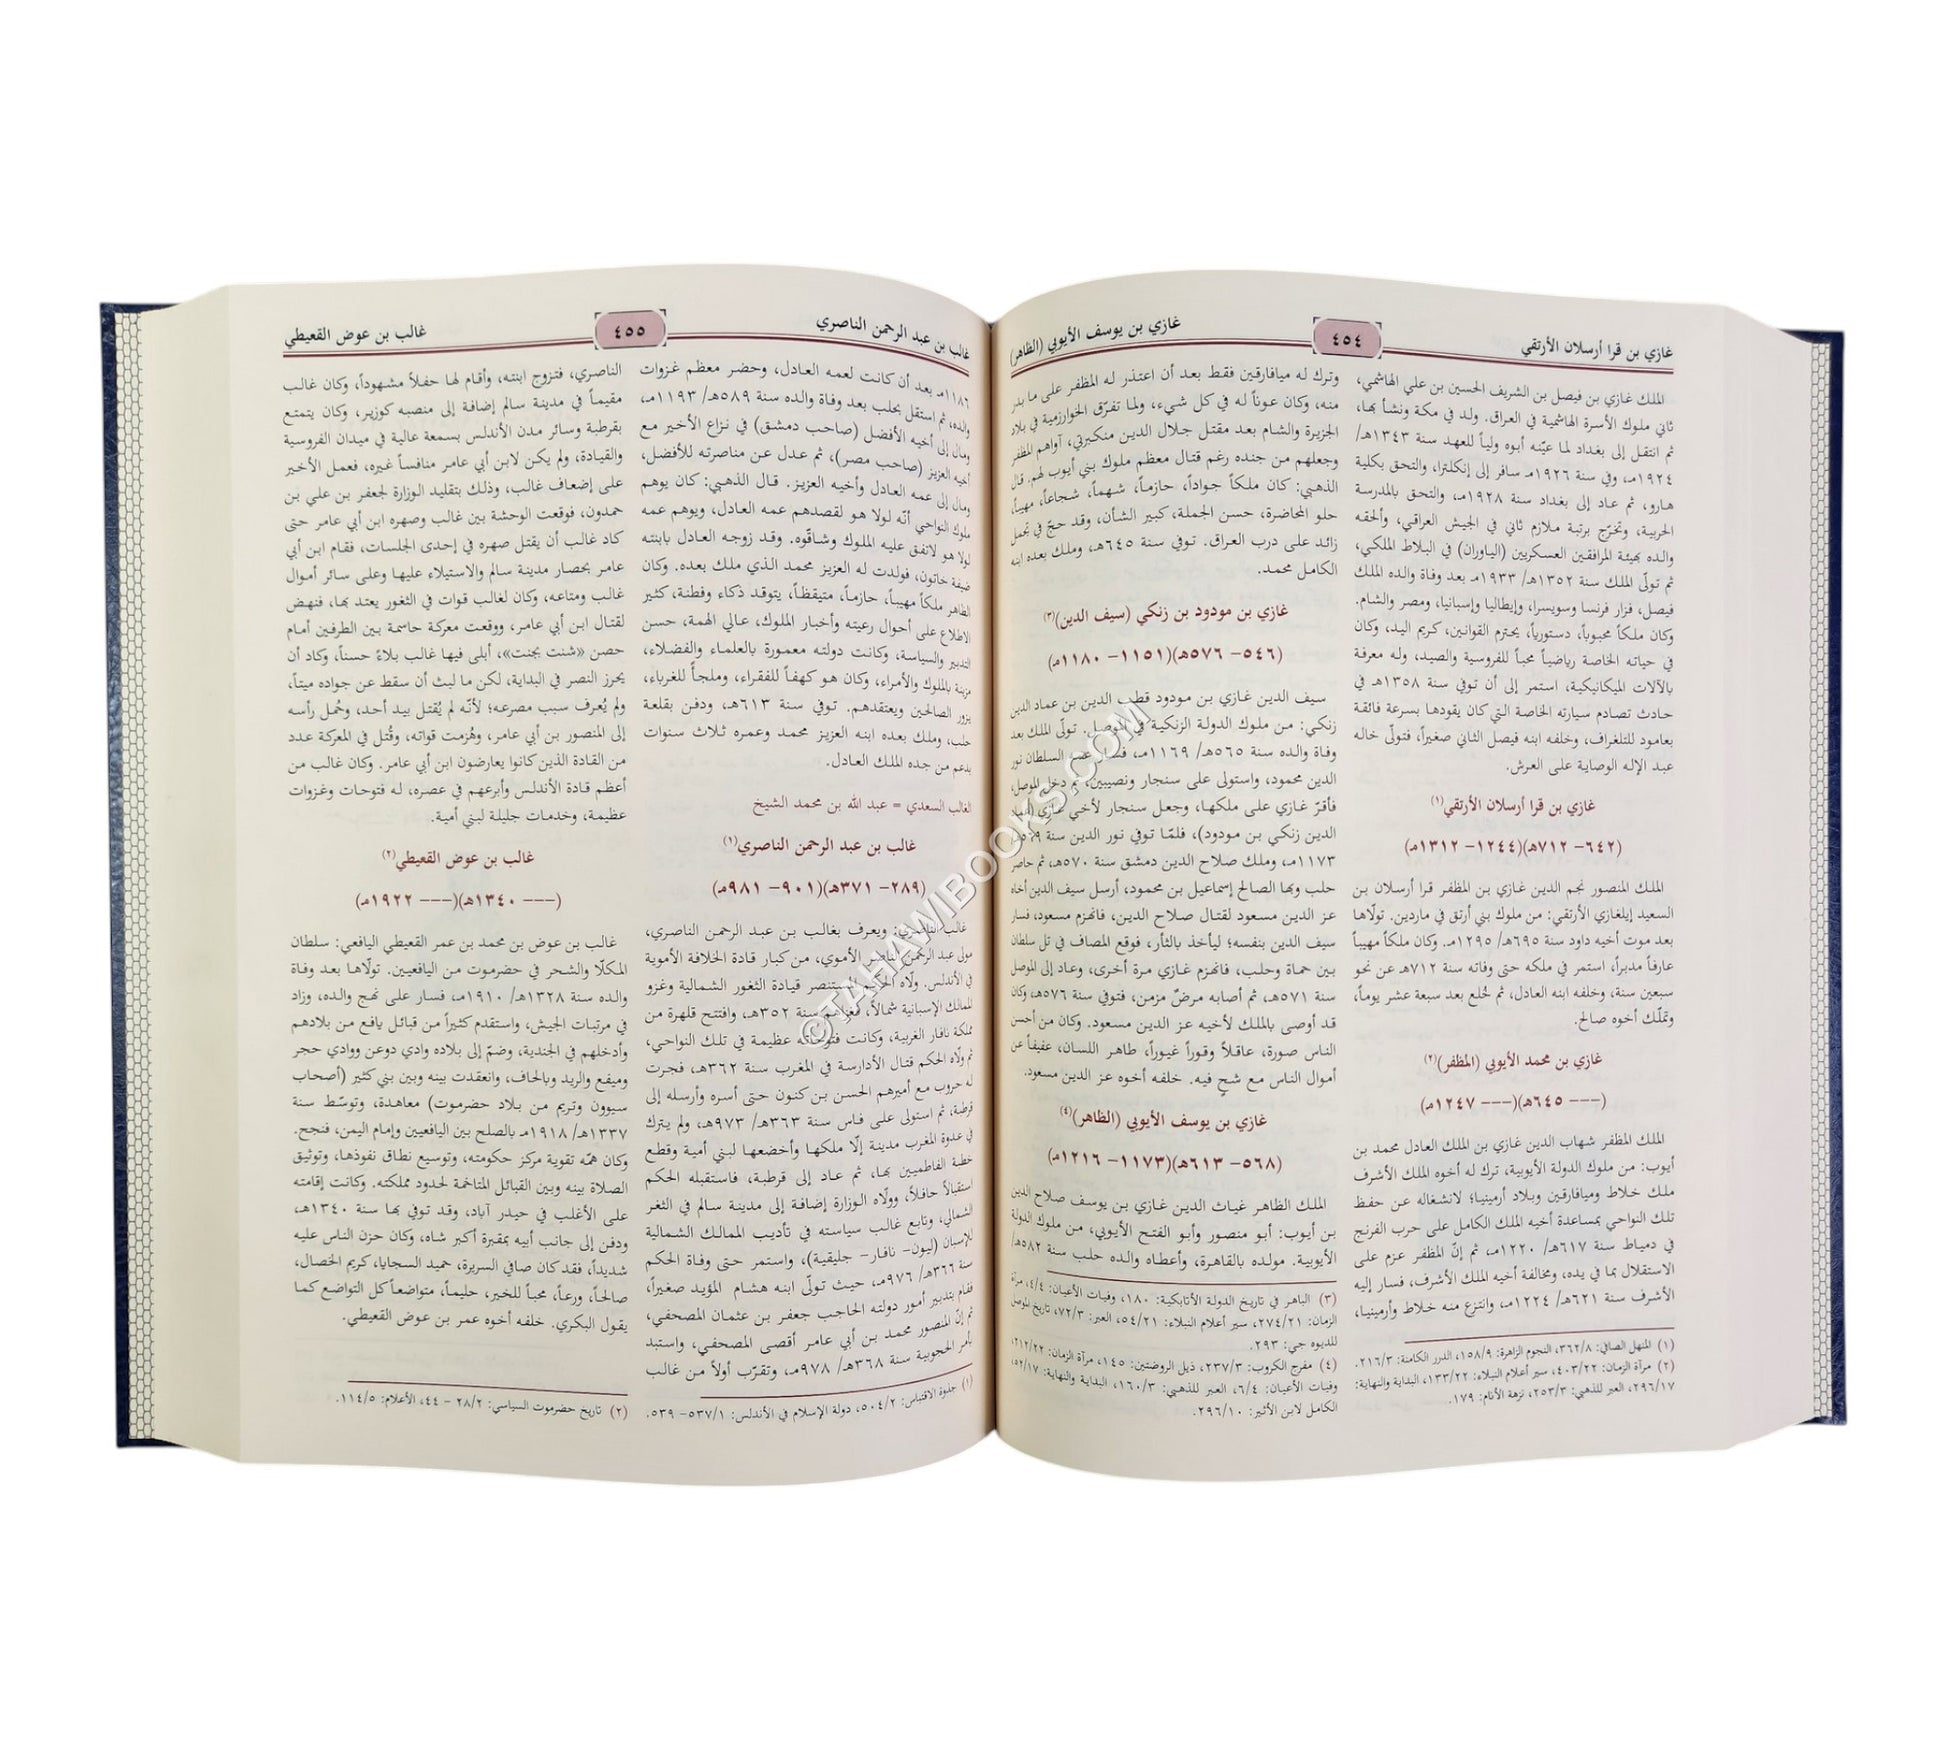 غازي بن قرا أرسلان الأرتقي
٤٥٤
غازي بن يوسف الأيوبي (الظاهر)
الملك غازي بن فيصل بن الشريف الحسين بن علي الهاشمي،
ثاني ملوك الأسرة الهاشمية في العراق. ولد في مكة ونشأ بها،
ثم انتقل إلى بغداد لما عيّنه أبوه ولياً للعهد سنة ١٣٤٣هـ/
١٩٢٤مـ، وفي سنة ١٩٢٦مـ سافر إلى إنكلترا، والتحق بكلية
هارو، ثم عاد إلى بغداد سنة ١٩٢٨مـ، والتحق بالمدرسة
الحربية، وتخرّج برتبة ملازم ثاني في الجيش العراقي، وألحقه
والده بهيئة المرافقين العسكريين (الياوران) في البلاط الملكي،
ثم تولّى الملك سنة ١٣٥٢هـ/ ١٩٣٣مـ بعد وفاة والده الملك
فيصل، فزار فرنسا وسويسرا، وإيطاليا وإسبانيا، ومصر والشام.
وكان ملكاً محبوباً، دستورياً، يحترم القوانين، كريم اليد، وكان
في حياته الخاصة رياضياً محباً للفروسية والصيد، وله معرفة
بالآلات الميكانيكية، استمر إلى أن توفي سنة ١٣٥٨هـ في
حادث تصادم سيارته الخاصة التي كان يقودها بسرعة فائقة
بعامود للتلغراف، وخلفه ابنه فيصل الثاني صغيراً، فتولّى خاله
عبد الإله الوصاية على العرش.
غازي بن قرا أرسلان الأرتقي(١)
(٦٤٢– ٧١٢هـ)(١٢٤٤– ١٣١٢مـ)
الملك المنصور نجم الدين غازي بن المظفر قرا أرسلان بن
السعيد إيلغازي الأرتقي: من ملوك بني أرتق في ماردين. تولّاها
بعد موت أخيه داود سنة ٦٩٥هـ/ ١٢٩٥مـ. وكان ملكاً مهيباً
عارفاً مدبراً، استمر في ملكه حتى وفاته سنة ٧١٢هـ عن نحو
سبعين سنة، وخلفه ابنه العادل، ثم خُلع بعد سبعة عشر يوماً،
وتملّك أخوه صالح.
غازي بن محمد الأيوبي (المظفر)(٢)
(--- ٦٤٥هـ)(--- ١٢٤٧مـ)
الملك المظفر شهاب الدين غازي بن الملك العادل محمد بن
أيوب: من ملوك الدولة الأيوبية، ترك له أخوه الملك الأشرف
ملك خلاط وميافارقين وبلاد أرمينيا؛ لانشغاله عن حفظ
تلك النواحي بمساعدة أخيه الملك الكامل على حرب الفرنج
في دمياط سنة ٦١٧هـ/ ١٢٢٠مـ، ثم إنّ المظفر عزم على
الاستقلال بما في يده، ومخالفة أخيه الملك الأشرف، فسار إليه
الأشرف سنة ٦٢١هـ/ ١٢٢٤مـ، وانتزع منه خلاط وأرمينيا،
(١) المنهل الصافي: ٣٦٢/٨، النجوم الزاهرة: ١٥٨/٩، الدرر الكامنة: ٢١٦/٣.
(٢) مرآة الزمان: ٤٠٣/٢٢، سير أعلام النبلاء: ١٣٣/٢٢، البداية والنهاية:
٢٩٦/١٧، العبر للذهبي: ٢٥٣/٣، نزهة الأنام: ١٧٩.
وترك له ميافارقين فقط بعد أن اعتذر له المظفر على ما بدر
منه، وكان عوناً له في كل شيء، ولما تفرّق الخوارزمية في بلاد
الجزيرة والشام بعد مقتل جلال الدين منكبرتي، آواهم المظفر
وجعلهم من جنده رغم قتال معظم ملوك بني أيوب لهم. قال
الذهبي: كان ملكاً جواداً، حازماً، شهماً، شجاعاً، مهيباً،
حلو المحاضرة، حسن الجملة، كبير الشأن، وقد حجّ في تجمل
زائد على درب العراق. توفي سنة ٦٤٥هـ، وملك بعده ابنه
الكامل محمد.
غازي بن مودود بن زنكي (سيف الدين)(٣)
(٥٤٦– ٥٧٦هـ)(١١٥١– ١١٨٠مـ)
سيف الدين غازي بن مودود قطب الدين بن عماد الدين
زنكي: من ملوك الدولة الزنكية في الموصل. تولّى الملك بعد
وفاة والده سنة ٥٦٥هـ/ ١١٦٩مـ، فسار عمه السلطان نور
الدين محمود، واستولى على سنجار ونصيبين، ثم دخل الموصل،
فأقرّ غازي على ملكها، وجعل سنجار لأخي غازي (عماد
الدين زنكي بن مودود)، فلمّا توفي نور الدين سنة ٥٦٩هـ/
١١٧٣مـ، وملك صلاح الدين دمشق سنة ٥٧٠هـ، ثم حاصر
حلب وبها الصالح إسماعيل بن محمود، أرسل سيف الدين أخاه
عز الدين مسعود لقتال صلاح الدين، فانهزم مسعود، فسار
سيف الدين بنفسه؛ ليأخذ بالثأر، فوقع المصاف في تل سلطان
بين حماة وحلب، فانهزم غازي مرة أخرى، وعاد إلى الموصل
سنة ٥٧١هـ، ثم أصابه مرضٌ مزمن، فتوفي سنة ٥٧٦هـ، وكان
قد أوصى بالملك لأخيه عز الدين مسعود. وكان من أحسن
الناس صورة، عاقلاً وقوراً غيوراً، طاهر اللسان، عفيفاً عن
أموال الناس مع شحٍ فيه. خلفه أخوه عز الدين مسعود.
غازي بن يوسف الأيوبي (الظاهر)(٤)
(٥٦٨– ٦١٣هـ)(١١٧٣– ١٢١٦مـ)
الملك الظاهر غياث الدين غازي بن يوسف صلاح الدين
بن أيوب: أبو منصور وأبو الفتح الأيوبي، من ملوك الدولة
الأيوبية. مولده بالقاهرة، وأعطاه والده حلب سنة ٥٨٢هـ/
(٣) الباهر في تاريخ الدولة الأتابكية: ١٨٠، وفيات الأعيان: ٤/٤، مرآة
الزمان: ٢٧٤/٢١، سير أعلام النبلاء: ٥٤/٢١، العبر: ٧٢/٣، تاريخ الموصل
للديوه جي: ٢٩٣.
(٤) مفرج الكروب: ٢٣٧/٣، ذيل الروضتين: ١٤٥، مرآة الزمان: ٢١٢/٢٢،
وفيات الأعيان: ٦/٤، العبر للذهبي: ١٦٠/٣، البداية والنهاية: ٥٢/١٧،
الكامل لابن الأثير: ٢٩٦/١٠.
غالب بن عبد الرحمن الناصري
٤٥٥
غالب بن عوض القعيطي
١١٨٦مـ بعد أن كانت لعمه العادل، وحضر معظم غزوات
والده، ثم استقل بحلب بعد وفاة والده سنة ٥٨٩هـ/ ١١٩٣مـ،
ومال إلى أخيه الأفضل (صاحب دمشق) في نزاع الأخير مع
أخيه العزيز (صاحب مصر)، ثم عدل عن مناصرته للأفضل،
ومال إلى عمه العادل وأخيه العزيز. قال الذهبي: كان يوهم
ملوك النواحي أنّه لولا هو لقصدهم عمه العادل، ويوهم عمه
لولا هو لاتفق عليه الملوك وشاقّوه. وقد زوجه العادل بابنته
ضيفة خاتون، فولدت له العزيز محمد الذي ملك بعده. وكان
الظاهر ملكاً مهيباً، حازماً، متيقظاً، يتوقد ذكاء وفطنة، كثير
الاطلاع على أحوال رعيته وأخبار الملوك، عالي الهمة، حسن
التدبير والسياسة، وكانت دولته معمورة بالعلماء والفضلاء،
مزينة بالملوك والأمراء، وكان هو كهفاً للفقراء، وملجأً للغرباء،
يزور الصالحين ويعتقدهم. توفي سنة ٦١٣هـ، ودفن بقلعة
حلب، وملك بعده ابنه العزيز محمد وعمره ثلاث سنوات
بدعم من جده الملك العادل.
الغالب السعدي = عبد الله بن محمد الشيخ
غالب بن عبد الرحمن الناصري(١)
(٢٨٩– ٣٧١هـ)(٩٠١– ٩٨١مـ)
غالب الناصري: ويعرف بغالب بن عبد الرحمن الناصري،
مولى عبد الرحمن الناصر الأموي، من كبار قادة الخلافة الأموية
في الأندلس. ولّاه الحكم المستنصر قيادة الثغور الشمالية وغزو
الممالك الإسبانية شمالاً، فغزاهم سنة ٣٥٢هـ، وافتتح قلهرة من
مملكة نافار الغربية، وكانت فتوحاته عظيمة في تلك النواحي،
ثم ولّاه الحكم قتال الأدارسة في المغرب سنة ٣٦٢هـ، فجرت
له حروب مع أميرهم الحسن بن كنون حتى أسره وأرسله إلى
قرطبة، ثم استولى على فاس سنة ٣٦٣هـ/ ٩٧٣مـ، ولم يترك
في عدوة المغرب مدينة إلّا ملكها وأخضعها لبني أمية وقطع
خطبة الفاطميين بها، ثم عاد إلى قرطبة، فاستقبله الحكم
استقبالاً حافلاً، وولّاه الوزارة إضافة إلى مدينة سالم في الثغر
الشمالي، وتابع غالب سياسته في تأديب الممالك الشمالية
للإسبان (ليون– نافار– جليقية)، واستمر حتى وفاة الحكم
سنة ٣٦٦هـ/ ٩٧٦مـ، حيث تولّى ابنه هشام المؤيد صغيراً،
فقام بتدبير أمور دولته الحاجب جعفر بن عثمان المصحفي،
ثم إنّ المنصور محمد بن أبي عامر أقصى المصحفي، واستبد
بأمر الحجوبية سنة ٣٦٨هـ/ ٩٧٨مـ، وتقرّب أولاً من غالب
(١) جذوة الاقتباس: ٥٠٤/٢، دولة الإسلام في الأندلس: ٥٣٧/١– ٥٣٩.
الناصري، فتزوج ابنته، وأقام لها حفلاً مشهوداً، وكان غالب
مقيماً في مدينة سالم إضافة إلى منصبه كوزير، وكان يتمتع
بقرطبة وسائر مدن الأندلس بسمعة عالية في ميدان الفروسية
والقيادة، ولم يكن لابن أبي عامر منافساً غيره، فعمل الأخير
على إضعاف غالب، وذلك بتقليد الوزارة لجعفر بن علي بن
حمدون، فوقعت الوحشة بين غالب وصهره ابن أبي عامر حتى
كاد غالب أن يقتل صهره في إحدى الجلسات، فقام ابن أبي
عامر بحصار مدينة سالم والاستيلاء عليها وعلى سائر أموال
غالب ومتاعه، وكان لغالب قوات في الثغور يعتد بها، فنهض
لقتال ابن أبي عامر، ووقعت معركة حاسمة بين الطرفين أمام
حصن «شنت بجنت»، أبلى فيها غالب بلاءً حسناً، وكاد أن
يحرز النصر في البداية، لكن ما لبث أن سقط عن جواده ميتاً،
ولم يُعرف سبب مصرعه؛ لأنّه لم يُقتل بيد أحد، وحُمل رأسه
إلى المنصور بن أبي عامر، وهُزمت قواته، وقُتل في المعركة عدد
من القادة الذين كانوا يعارضون ابن أبي عامر. وكان غالب من
أعظم قادة الأندلس وأبرعهم في عصره، له فتوحات وغزوات
عظيمة، وخدمات جليلة لبني أمية.
غالب بن عوض القعيطي(٢)
(--- ١٣٤٠هـ)(--- ١٩٢٢مـ)
غالب بن عوض بن محمد بن عمر القعيطي اليافعي: سلطان
المكلّا والشحر في حضرموت من اليافعيين. تولاها بعد وفاة
والده سنة ١٣٢٨هـ/ ١٩١٠مـ، فسار على نهج والده، وزاد
في مرتبات الجيش، واستقدم كثيراً من قبائل يافع من بلادهم
وأدخلهم في الجندية، وضمّ إلى بلاده وادي دوعن ووادي حجر
وميفع والريد وبالحاف، وانعقدت بينه وبين بني كثير (أصحاب
سيوون وتريم من بلاد حضرموت) معاهدة، وتوسّط سنة
١٣٣٧هـ/ ١٩١٨مـ بالصلح بين اليافعيين وإمام اليمن، فنجح.
وكان همّه تقوية مركز حكومته، وتوسيع نطاق نفوذها، وتوثيق
الصلاة بينه وبين القبائل المتاخمة لحدود مملكته. وكانت إقامته
على الأغلب في حيدر آباد، وقد توفي بها سنة ١٣٤٠هـ،
ودفن إلى جانب أبيه بمقبرة أكبر شاه، وكان حزن الناس عليه
شديداً، فقد كان صافي السريرة، حميد السجايا، كريم الخصال،
صالحاً، ورعاً، محباً للخير، حليماً، متواضعاً كل التواضع كما
يقول البكري. خلفه أخوه عمر بن عوض القعيطي.
(٢) تاريخ حضرموت السياسي: ٢٨/٢ – ٤٤، الأعلام: ١١٤/٥.
©TAHAWIBOOKS.COM